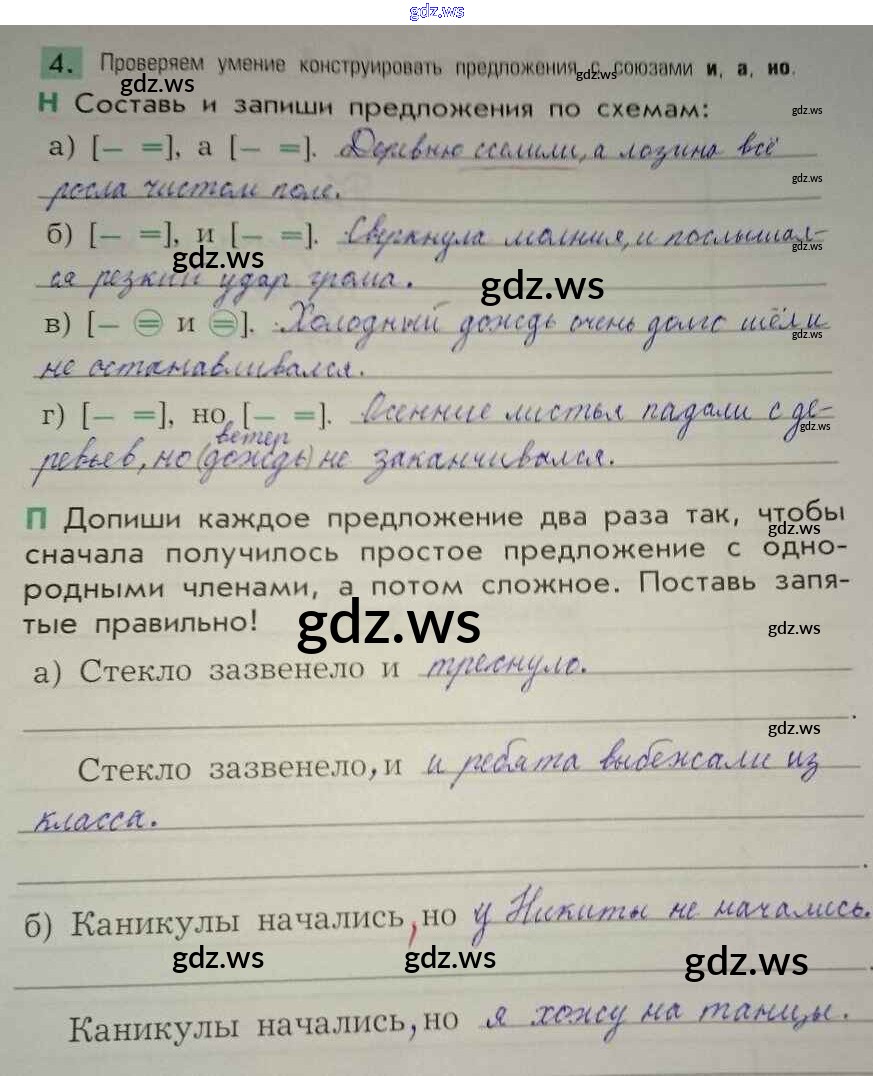 gdz.ws
4. Проверяем умение конструировать предложения с союзами и, а, но.
gdz.ws gdz.ws
Н Составь и запиши предложения по схемам: gdz.ws
а) [— =], а [— =]. Деревню сселили, а лозина всё
gdz.ws
росла чистом поле.
б) [— =], и [— =]. Сверкнула молния, и послышал-
gdz.ws gdz.ws
ся резкий удар грома. gdz.ws
в) [— = и =]. Холодный дождь очень долго шёл и
gdz.ws
не останавливался.
г) [— =], но [— =]. Осенние листья падали с де-
gdz.ws
ветер
ревьев, но (дождь) не заканчивался.
П Допиши каждое предложение два раза так, чтобы
gdz.ws
сначала получилось простое предложение с одно-
родными членами, а потом сложное. Поставь запя-
тые правильно! gdz.ws gdz.ws
а) Стекло зазвенело и треснуло.
.
gdz.ws
Стекло зазвенело, и и ребята выбежали из
класса.
.
б) Каникулы начались, но у Никиты не начались.
gdz.ws gdz.ws gdz.ws
.
Каникулы начались, но я хожу на танцы.